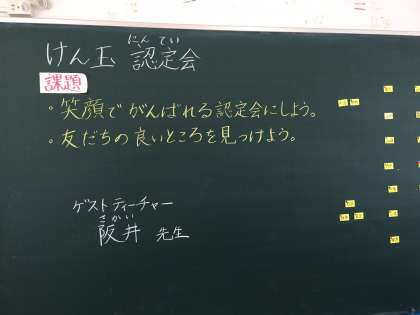 けん玉 認定会
にんてい
課題
・笑顔でがんばれる認定会にしよう。
・友だちの良いところを見つけよう。
ゲストティーチャー
さかい
阪井 先生